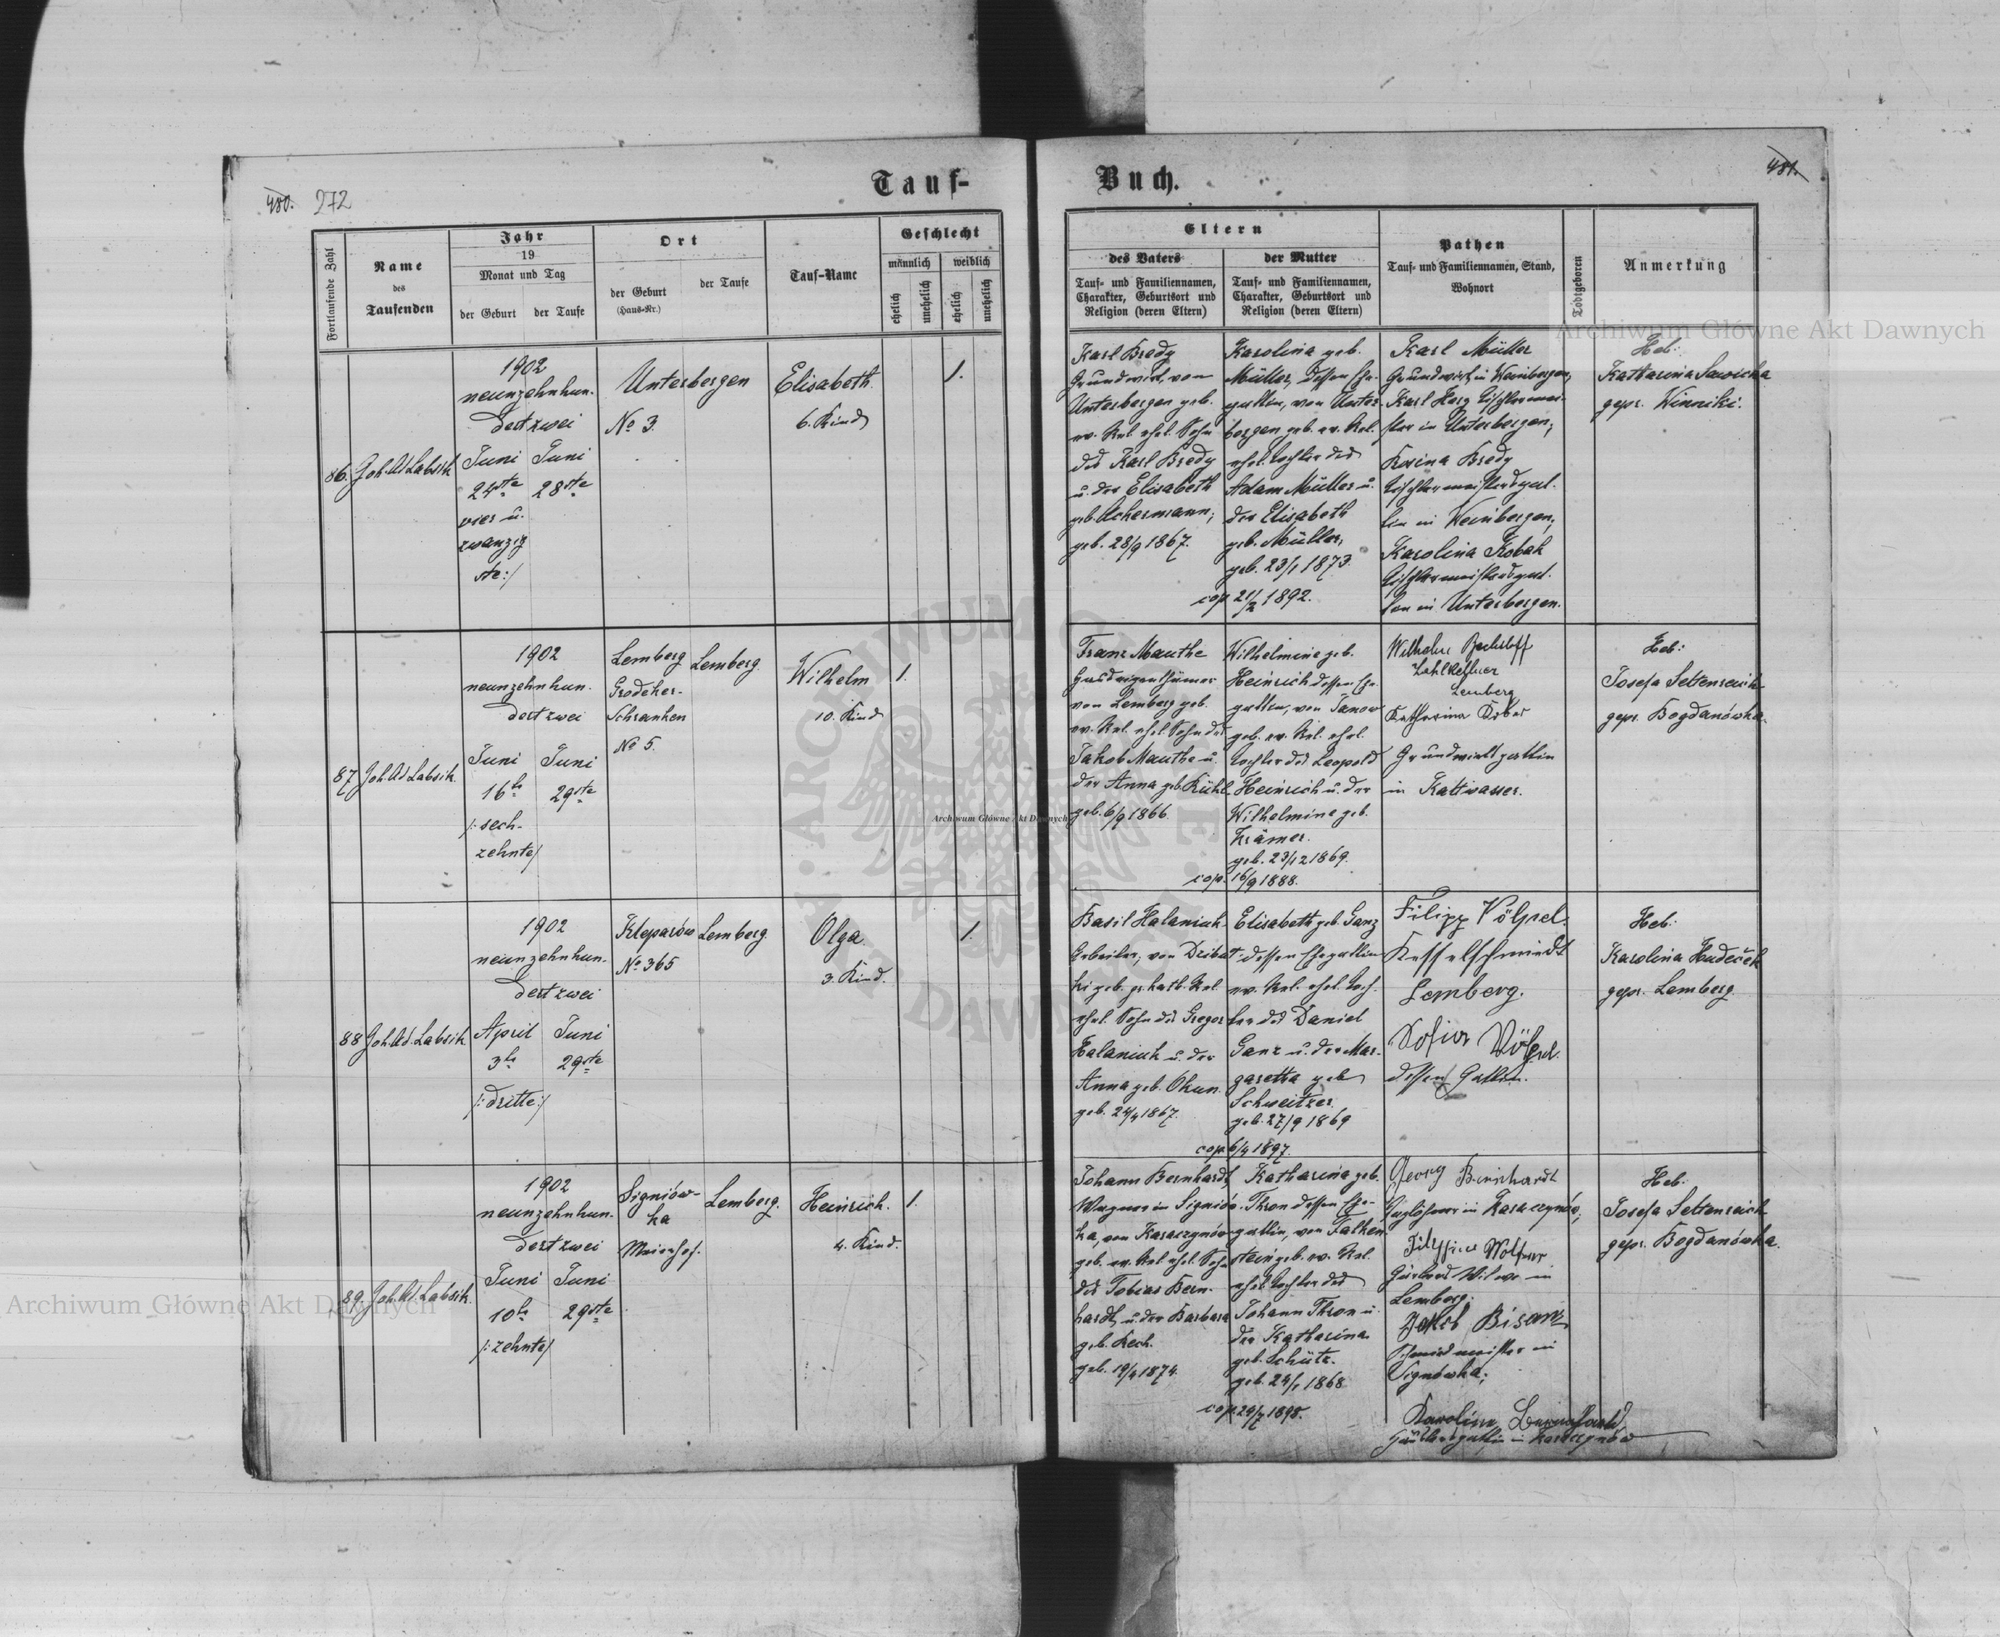 480. 272
Tauf-
Buch.
481.
Fortlaufende Zahl
Name
des
Taufenden
Jahr
19
Monat und Tag
der Geburt
der Taufe
Ort
der Geburt
(Haus-Nr.)
der Taufe
Tauf-Name
Geschlecht
männlich
weiblich
ehelich
unehelich
ehelich
unehelich
Eltern
des Vaters
Tauf- und Familiennamen,
Charakter, Geburtsort und
Religion (deren Eltern)
der Mutter
Tauf- und Familiennamen,
Charakter, Geburtsort und
Religion (deren Eltern)
Pathen
Tauf- und Familiennamen, Stand,
Wohnort
Todtgeboren
Anmerkung
86.
Joh. Ad. Labsik
1902
neunzehnhun-
dertzwei
Juni Juni
24ste 28ste
vier u.
zwanzig
ste:/
Unterbergen
No 3.
Elisabeth.
6. Kind
1.
Karl Bredy
Grundwirt, von
Unterbergen geb.
ev. Rel. ehel. Sohn
des Karl Bredy
u. der Elisabeth
geb. Ackermann,
geb. 28/9 1867.
Karolina geb.
Müller, dessen Ehe-
gattin, von Unter-
bergen geb. ev. Rel.
ehel. Tochter des
Adam Müller u.
der Elisabeth
geb. Müller,
geb. 23/1 1873.
cop. 21/2 1892.
Karl Müller
Grundwirt in Weinbergen,
Karl Herz Tischlermei-
ster in Unterbergen;
Rosina Bredy
Tischlermeistersgat-
tin in Weinbergen;
Karolina Kobak
Tischlermeistersgat-
tin in Unterbergen.
Heb:
Katharina Sawicka
gepr. Winniki.
87.
Joh. Ad. Labsik.
1902
neunzehnhun-
dertzwei
Juni Juni
16te 29ste
/:sech-
zehnte/
Lemberg
Grodeker-
Schranken
No 5.
Lemberg.
Wilhelm
10. Kind
1.
Franz Mauthe
Grundeigenthümer
von Lemberg geb.
ev. Rel. ehel. Sohn des
Jakob Mauthe u.
der Anna geb. Kühl
geb. 6/9 1866.
Wilhelmine geb.
Heinrich dessen Ehe-
gattin, von Janow
geb. ev. Rel. ehel.
Tochter des Leopold
Heinrich u. der
Wilhelmine geb.
Krämer.
geb. 23/12 1869.
cop. 16/9 1888.
Zahlkellner
Lemberg
Katharina
Grundwirtsgattin
in Kaltwasser.
Heb:
Josefa Settenreich
gepr. Bogdanówka.
88
Joh. Ad. Labsik
1902
neunzehnhun-
dertzwei
April Juni
3te 29ste
/:dritte:/
Kleparów
No 365
Lemberg.
Olga.
3. Kind.
1.
Basil Halaniuk
Arbeiter, von Dzibul-
ki geb. gr. kath. Rel.
ehel. Sohn des Gregor
Halaniuk u. der
Anna geb. Okun.
geb. 24/4 1867.
Elisabeth geb. Ganz
dessen Ehegattin
ev. Rel. ehel. Toch-
ter des Daniel
Ganz u. der Mar-
garetha geb.
Schweitzer
geb. 27/9 1869
cop. 6/4 1897.
Filipp Völpel.
Kesselschmiedt
Lemberg.
Sofia Völpel.
dessen Gattin.
Heb:
Karolina Hudeček
gepr. Lemberg.
89.
Joh. Ad. Labsik.
1902
neunzehnhun-
dertzwei
Juni Juni
10te 29ste
/:zehnte/
Signiów-
ka
Maierhof.
Lemberg.
Heinrich.
4. Kind.
1.
Johann Bernhardt,
Wagner in Signiów-
ka, von Karaczynów
geb. ev. Rel. ehel. Sohn
des Tobias Bern-
hardt, u. der Barbara
geb. Kech.
geb. 19/4 1874.
Katharina geb.
Thron dessen Ehe-
gattin, von Falken-
stein geb. ev. Rel.
ehel. Tochter des
Johann Thron u.
der Katharina
geb. Schütz.
geb. 24/1 1868
Georg Bernhardt
Taglöhner in Karaczynów;
in
Lemberg;
Jakob Bisanz
Schmiedmeister in
Signówka;
Karolina Bernhardt
in Karaczynów
Heb:
Josefa Settenreich
gepr. Bogdanówka.
Archiwum Główne Akt Dawnych
Archiwum Główne Akt Dawnych
Archiwum Główne Akt Dawnych